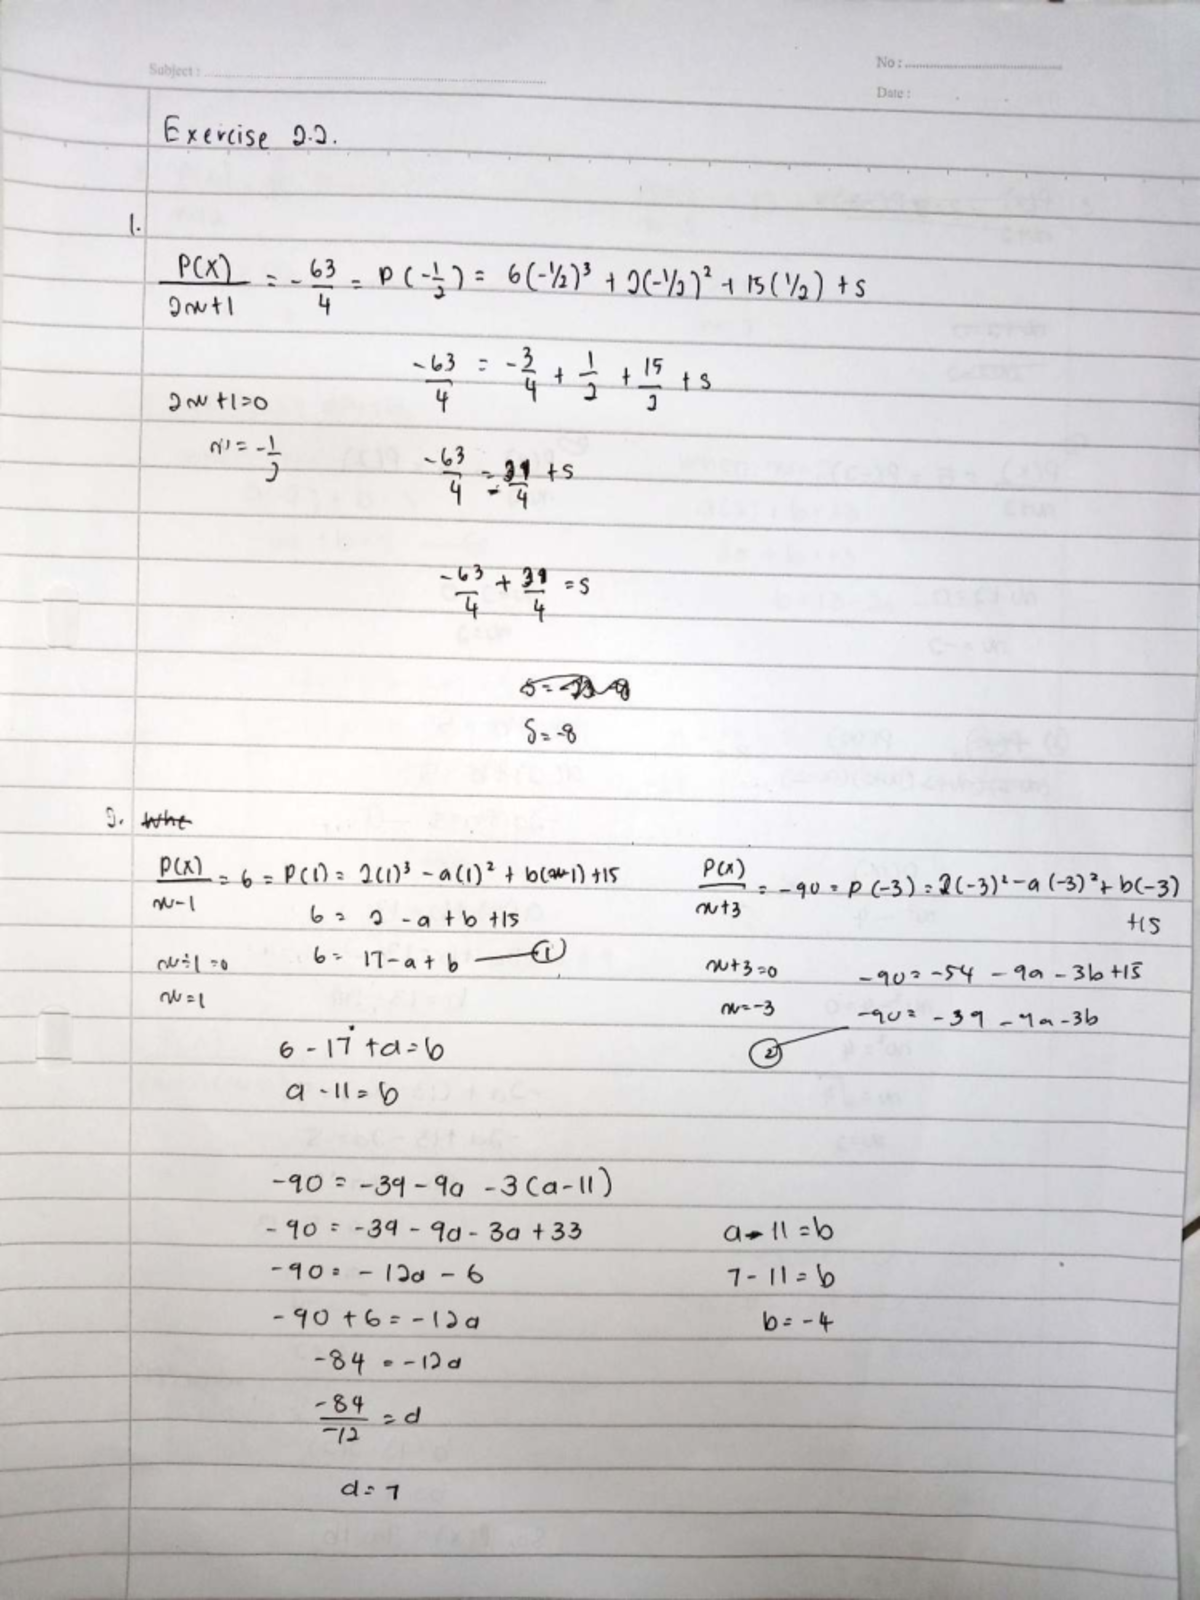 Subject :
No :
Date :
Exercise 2.2.
1.
P(x)/2x+1 = -63/4 = P(-1/2) = 6(-1/2)³ + 2(-1/2)² + 15(1/2) + s
-63/4 = -3/4 + 1/2 + 15/2 + s
2x+1=0
x = -1/2
-63/4 = -31/4 + s
-63/4 + 31/4 = s
s = -8
2.
P(x)/x-1 = 6 = P(1) = 2(1)³ - a(1)² + b(1) + 15
6 = 2 - a + b + 15
x-1=0
6 = 17 - a + b ①
x=1
6 - 17 + a = b
a - 11 = b
P(x)/x+3 = -90 = P(-3) = 2(-3)³ - a(-3)² + b(-3)
+15
x+3=0
-90 = -54 - 9a - 3b + 15
x=-3
-90 = -39 - 9a - 3b
②
-90 = -39 - 9a - 3(a-11)
-90 = -39 - 9a - 3a + 33
-90 = -12a - 6
-90 + 6 = -12a
-84 = -12a
-84/-12 = a
a = 7
a - 11 = b
7 - 11 = b
b = -4